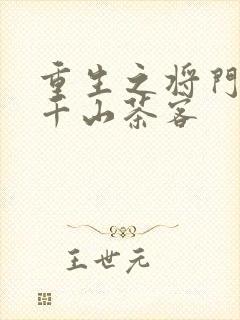 重生之将門
千山茶客
王世元